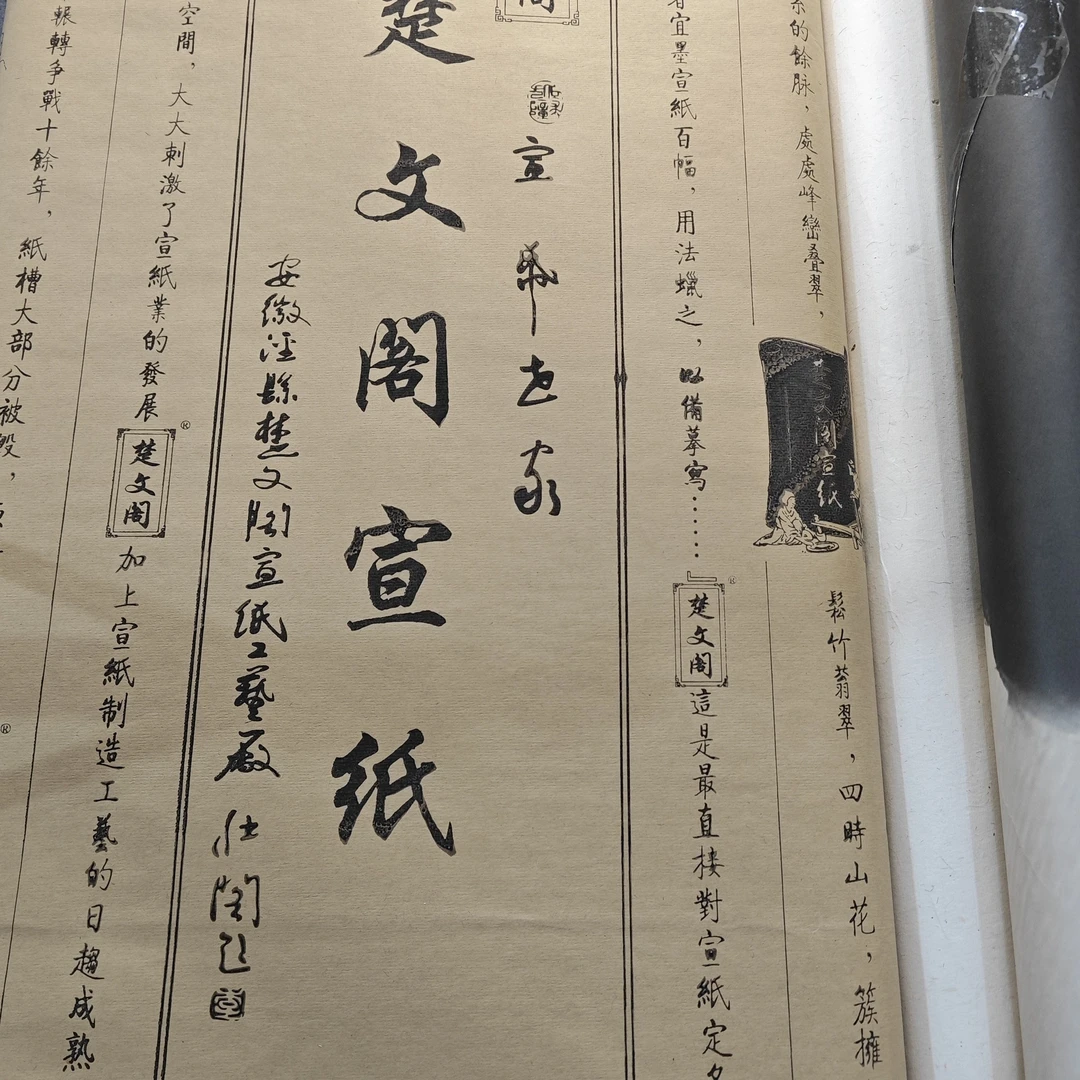 的餘脉，處處峰巒叠翠，
楚文閣宣紙
鬆竹蓊翠，四時山花，簇擁
宜墨宣紙百幅，用法蠟之，以備摹寫……」
楚文閣®
這是最直接對宣紙定
閣
宣帋世家
楚文阁宣纸
安徽泾縣楚文阁宣纸工藝廠
空間，大大刺激了宣紙業的發展
楚文閣®
加上宣紙制造工藝的日趨成熟
輾轉争戰十餘年，紙槽大部分被毁，
®